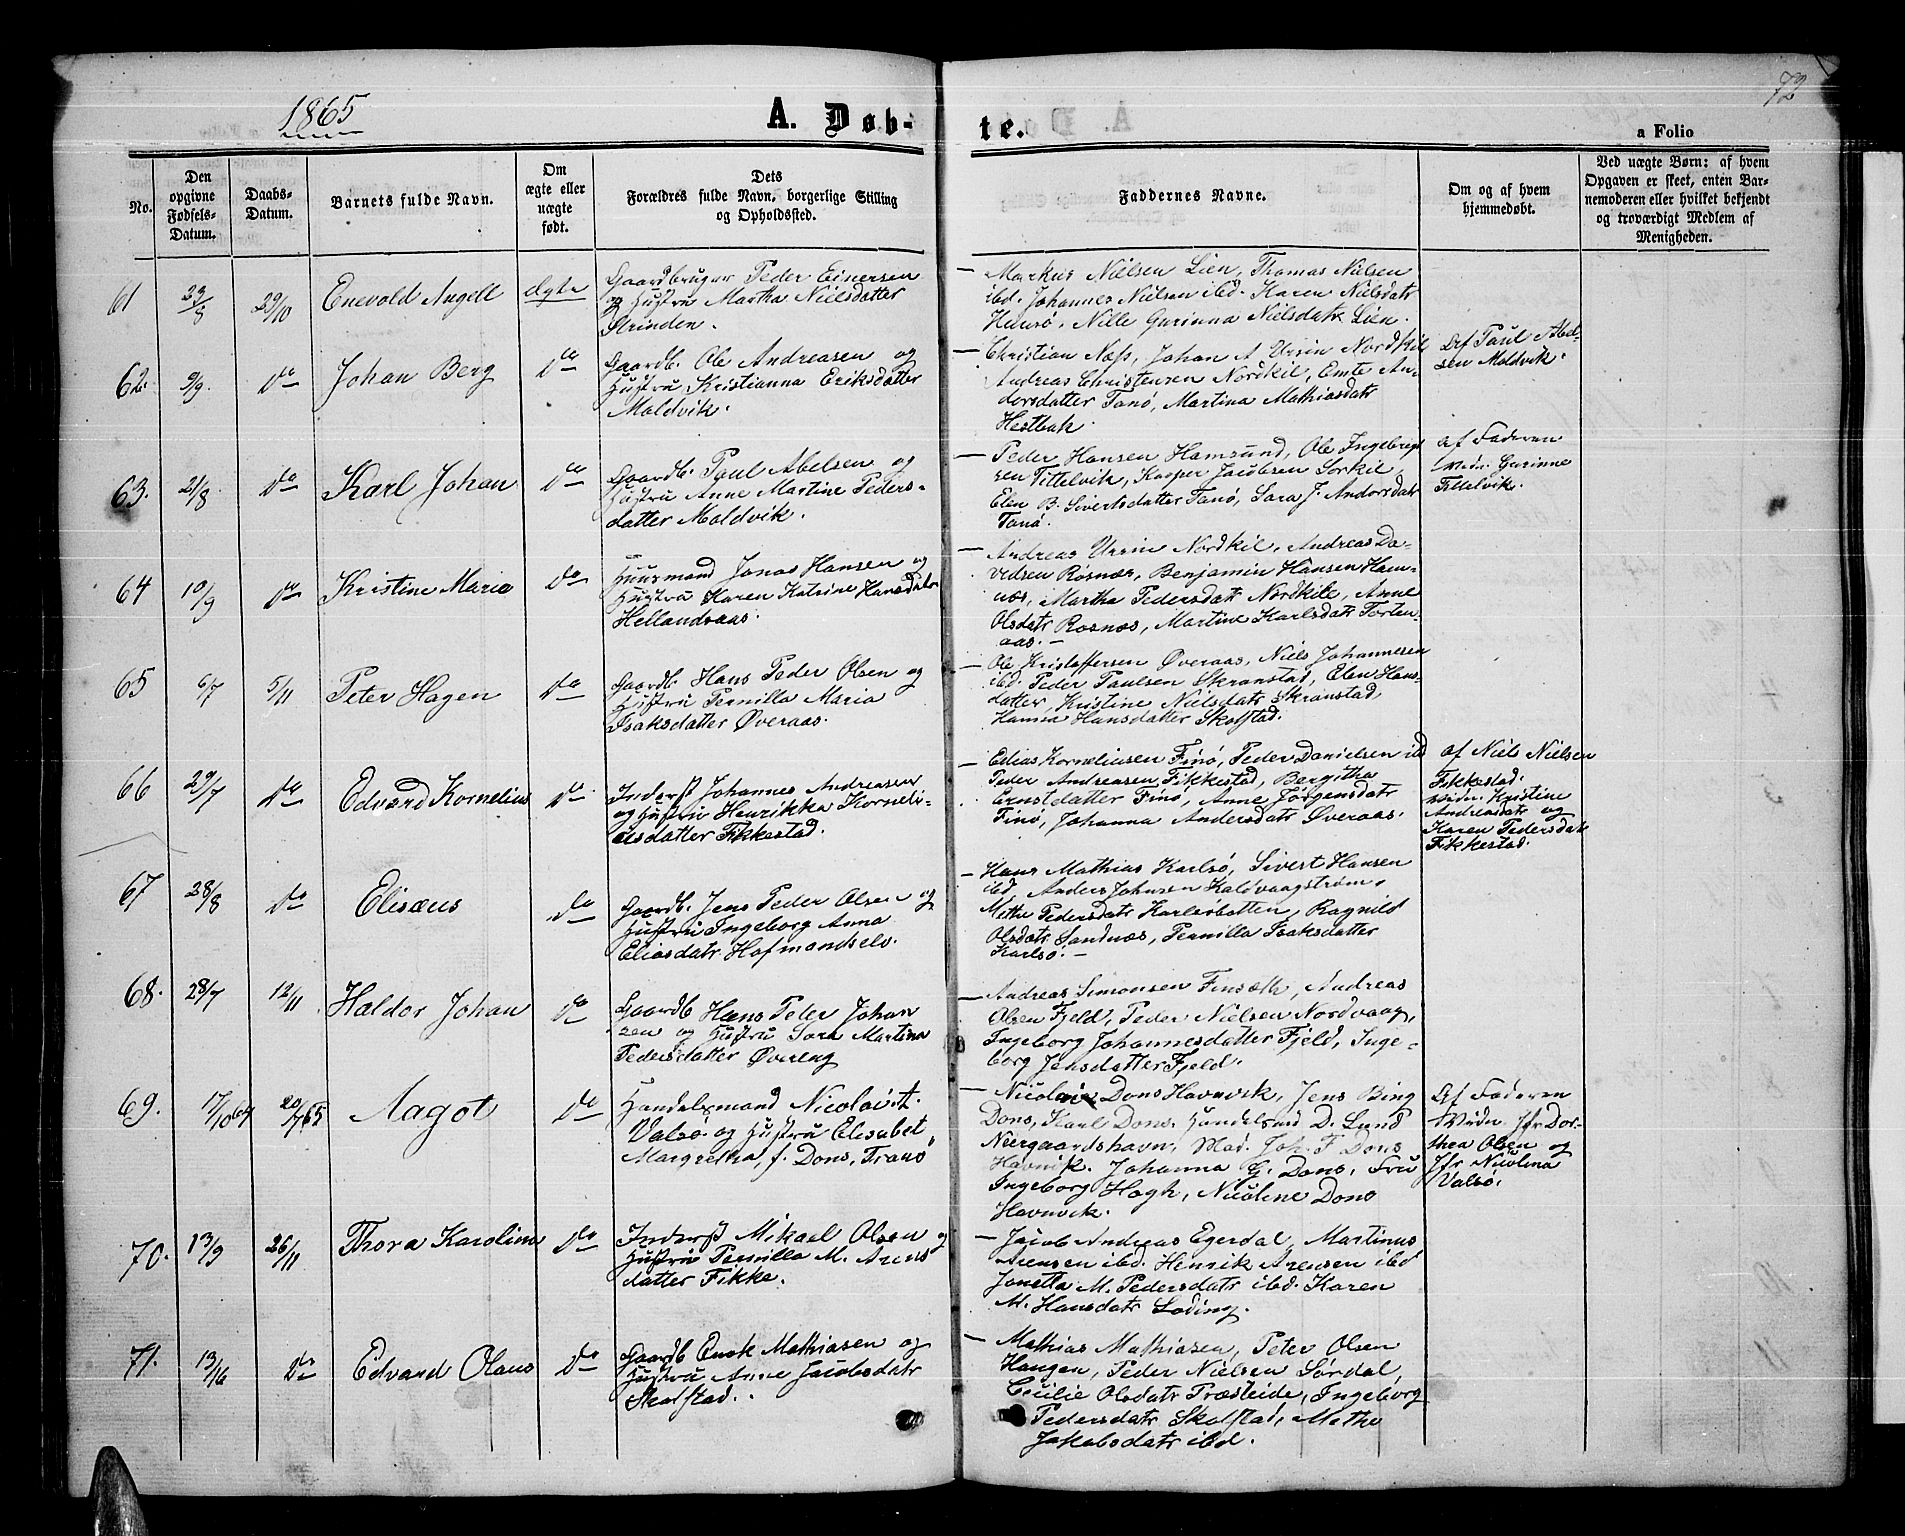 1865
A. Døb-
te.
72
a Folio
No.
Den
opgivne
Fødsels-
Datum.
Daabs-
Datum.
Barnets fulde Navn.
Om
ægte eller
uægte
født.
Dets
Forældres fulde Navn, borgerlige Stilling
og Opholdssted.
Faddernes Navne.
Om og af hvem
hjemmedøbt.
Ved uægte Børn: af hvem
Opgaven er skeet, enten Bar-
nemoderen eller hvilket bekjendt
og troværdigt Medlem af
Menigheden.
61
29/8
29/10
Enevold Angell
Ægte
Gaardbruger Peder Einersen
og Hustru Martha Nielsdatter
Strinden.
— Markus Nielsen Lien, Thomas Nielsen
ibd. Johannes Nielsen ibd. Karen Nielsdatr
Hunsø, Nille Gurinna Nielsdatr Lien.
62.
9/9
do
Johan Berg
do
Gaardb. Ole Andreasen og
Hustru Kristianna Eriksdatter
Moldvik.
— Christian Næss, Johan A Ursin Nordkil
Andreas Christensen Nordkil, Emte An-
dorsdatter Tanø, Martina Mathiasdatr
Hestbak.
Af Paul Abel-
sen Moldvik.
63.
21/8
do
Karl Johan
do
Gaardb. Paul Abelsen og
Hustru Anne Martine Peders-
datter Moldvik.
— Peder Hansen Hamsund, Ole Ingebrigt
sen Tittelvik, Kasper Jacobsen Sorkil,
Elen B. Sivertsdatter Tanø, Sara J. Andorsdatr
Tanø.
af Faderen
Vidn. Gurinne
Tittelvik.
64
10/9
do
Kristine Maria
do
Huusmand Jonas Hansen og
Hustru Karen Katrine Hansdatr
Hellandsaas.
— Andreas Ursin Nordkil, Andreas Da-
vidsen Røsnæs, Benjamin Hansen Ham-
næs, Martha Pedersdatr Nordkile, Anne
Olsdatr Rosnæs, Martine Karlsdatr Torten-
aas.—
65
6/7
5/11
Peter Hagen
do
Gaardb. Hans Peder Olsen og
Hustru Pernilla Maria
Isaksdatter Øveraas.
— Ole Kristoffersen Øveraas, Niels Johannesen
ibd. Peder Paulsen Skranstad, Elen Hans-
datter, Kristine Nielsdatr Skranstad
Hanna Hansdatter Skolstad.
66
29/7
do
Edvard Kornelius
do
Inderst Johannes Andreasen
og Hustru Henrikka Korneli-
usdatter Fikkestad.
— Edias Korneliusen Finø, Peder Danielsen ibd
Peder Andreasen Fikkestad, Bergitha
Ernstdatter Finø, Anne Jørgensdatr
Finø, Johanna Andersdatr Øveraas.
af Niels Nielsen
Fikkestad.
Vidn. Kristine
Andreasdatr og
Karen Pedersdatr
Fikkestad.
67
28/8
do
Elisæus
do
Gaardb. Jens Peder Olsen og
Hustru Ingeborg Anna
Eliasdatr Hofmandselv.
— Hans Mathias Karlsø, Sivert Hansen
ibd, Anders Johnsen Kaldvaagstrøm,
Methe Pedersdatr Karlesbotten, Ragnild
Olsdatr Sandnæs, Pernilla Isaksdatter
Karlsø.—
68.
28/7
12/11
Haldor Johan
do
Gaardb Hans Peter Johan
sen og Hustru Sara Martina
Pedersdatter Øvereng
— Andreas Simonsen Finsæth, Andreas
Olsen Fjeld, Peder Nielsen Nordvaag,
Ingeborg Johannesdatter Fjeld, Inge-
borg Jensdatter Fjeld.
69.
17/10 64
20/7 65
Aagot
do
Handelsmand Nicolai A.
Valsø og Hustru Elisabet
Margretha, f. Dons, Tranø
— Nicolai Dons Havnvik, Jens Bing
Dons, Karl Dons. Handelsmd D. Lund
Nergaardshavn, Mad. Joh. F Dons
Havnvik. Johanna G. Dons. Fru
Ingeborg Hogh, Nicoline Dons
Havnvik.
Af Faderen
Vidn Jfr Dor-
thea Olsen og
Jfr Nicolina
Valsø.
70.
13/9
26/11
Thora Karolina
do
Inderst Mikael Olsen og
Hustru Pernilla M. Arens
datter Fikke.
— Jacob Andreas Egerdal, Martinus
Arensen ibd. Henrik Arensen ibd
Jonetta M. Pedersdatr ibd. Karen
M. Hansdatr Loding.
71.
13/6
do
Edvard Olaus
do
Gaardb Enok Mathiasen og
Hustru Anne Jacobsdatr
Skolstad.
— Mathias Mathiasen, Peter Olsen
Haugen, Peder Nielsen Sørdal,
Cecilie Olsdatr Præsteide, Ingeborg
Pedersdatr Skolstad, Methe
Jakobsdatr ibd.